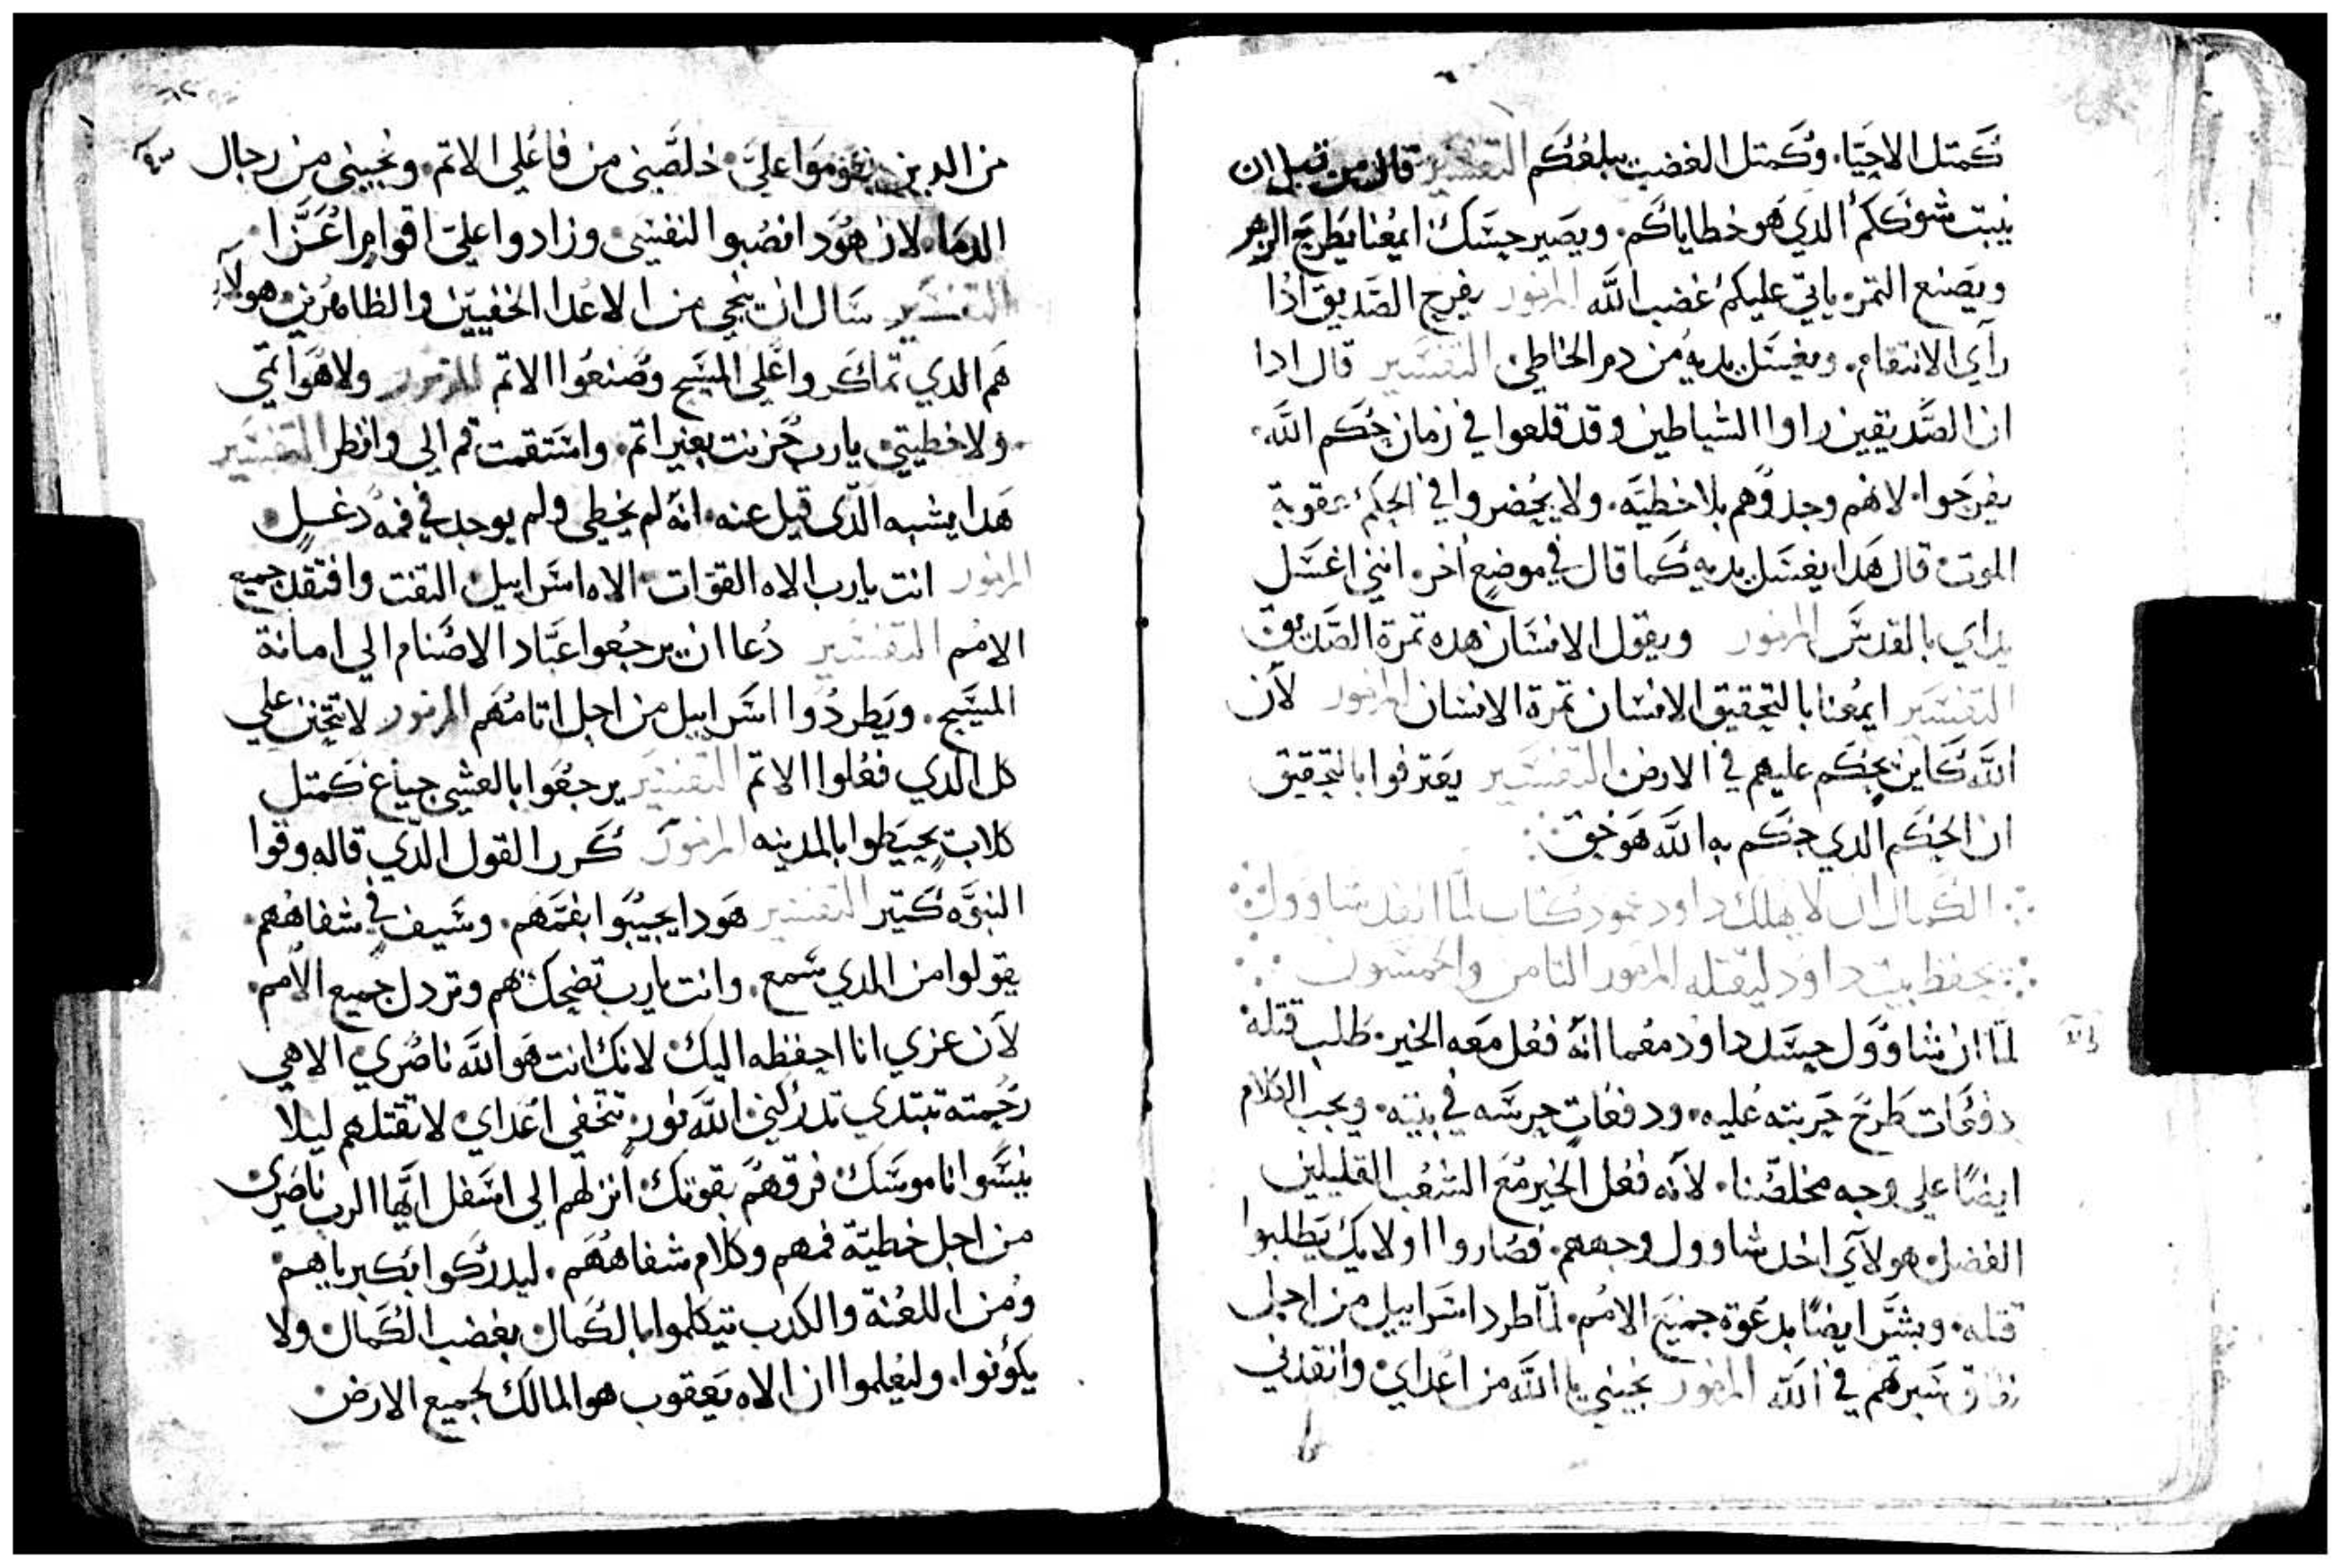 كمتل الاحيا. وكمتل الغضب يبلعكم التفسير قال من قبل ان
ينبت شوككم الدي هو خطاياكم. ويصير حسك ايمعنا يطرح الزهر
ويصنع التمر. ياتي عليكم غضب الله المزمور يفرح الصديق ادا
راي الانتقام. ويغسل يديه من دم الخاطي التفسير قال ادا
ان الصديقين راوا الشياطين وقد قلعوا في زمان حكم الله.
يفرحوا. لانهم وجدوهم بلا خطيه. ولا يحضروا في الحكم عقوبة
الموت قال هدا يغسل يديه كما قال في موضع اخر. انني اغسل
يداي بالقدس المزمور ويقول الانسان هده تمرة الصديق
التفسير ايمعنا بالتحقيق الانسان تمرة الانسان المزمور لان
الله كاين يحكم عليهم في الارض التفسير يعترفوا بالتحقيق
ان الحكم الدي حكم به الله هو حق
الكمال ان لا يهلك داود عمود كتاب لما انفد شاوول
يحفظ بيت داود ليقتله المزمور التامن والخمسون
لما ان شاوول حسد داود معما انه فعل معه الخير. طلب قتله
دفعات طرح حربته عليه. ودفعات حرسه في بيته. ويجب الكلام
ايضا علي وجه مخلصنا. لانه فعل الخير مع الشعب القليلين
الفضل هولاي اخد شاوول وجههم. فصاروا اولايك يطلبوا
قتله. وبشر ايضا بدعوة جميع الامم. لما طرد اسراييل من اجل
نفاق سيرتهم في الله المزمور نجيني يا الله من اعداي وانقدني
من الدين يقوموا علي. خلصني من فاعلي الاتم. ونجيني من رجال
الدما. لان هودا نصبوا لنفسي. وزادوا علي اقواما عزا.
التفسير سال ان ينجي من الاعدا الخفيين والظاهرين هولا
هم الدي تماكروا علي المسيح وصنعوا الاتم المزمور ولا هو اتمي
ولا خطيتي يارب حزنت بغير اتم. واستقمت قم الي وانظر التفسير
هدا يشبه الدي قيل عنه. انه لم يخطي ولم يوجد في فمه دغسل
المزمور انت يارب الاه القوات الاه اسراييل التفت وافتقد جميع
الامم التفسير دعا ان يرجعوا عباد الاصنام الي امانة
المسيح. ويطردوا اسراييل من اجل اتامهم المزمور لا تتحنن علي
كل الدي فعلوا الاتم التفسير يرجعوا بالعشي جياع كمتل
كلاب يحيطوا بالمدينه المزمور كرر القول الدي قاله وقوا
النبوه كتير التفسير هودا يجيبوا بفمهم. وسيف في شفاههم.
يقولوا من الدي سمع. وانت يارب تضحك بهم وتردل جميع الامم.
لان عزي انا احفظه اليك لانك انت هو الله ناصري الاهي
رحمته تبتدي تدركني الله نور. تتخفي اعداي لا تقتلهم ليلا
ينسوا ناموسك فرقهم بقوتك انزلهم الي اسفل ايها الرب ناصري
من اجل خطية فمهم وكلام شفاههم. ليدركوا بكبرياهم
ومن اللعنة والكدب يتكلموا بالكمال بغضب الكمال ولا
يكونوا. وليعلموا ان الاه يعقوب هو المالك لجميع الارض